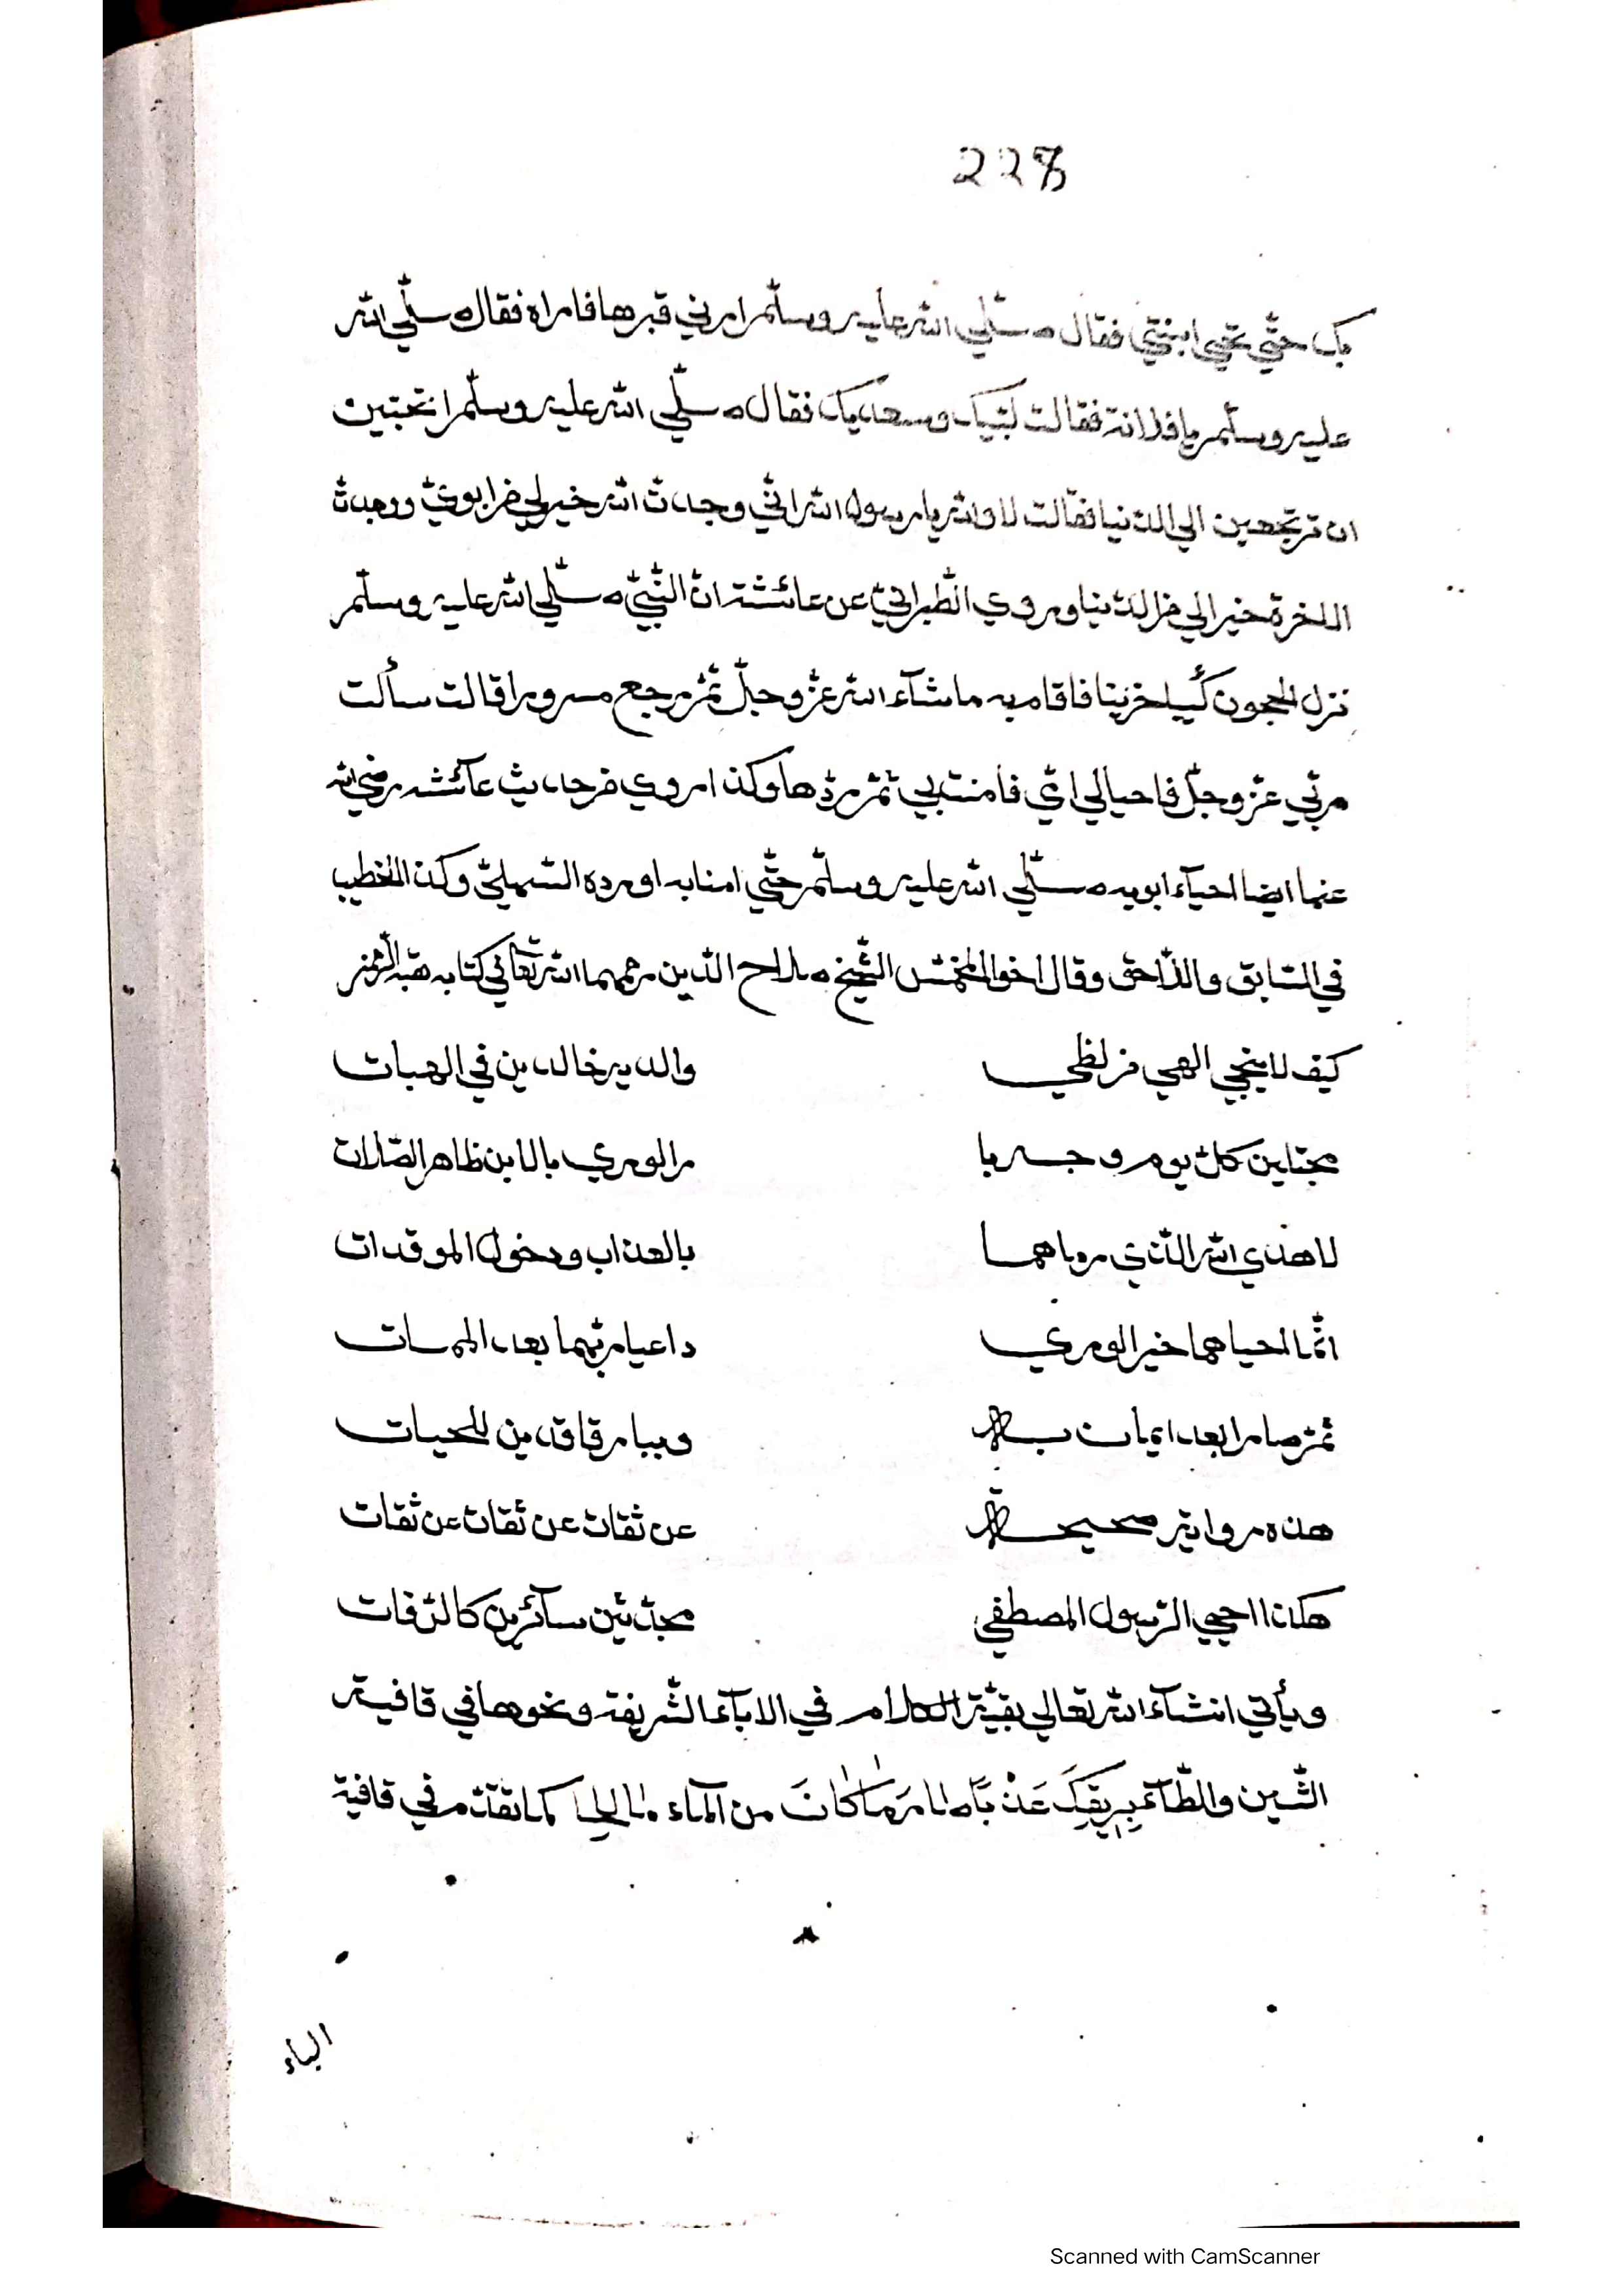 228
بك حتّي تحيي ابنتي فقال صلّي اللّه عليه وسلّم ارني قبرها فاراه فقال صلّي اللّه
عليه وسلّم يا فلانة فقالت لبّيك وسعديك فقال صلّي اللّه عليه وسلّم اتحبّين
ان ترجعين الي الدّنيا فقالت لا واللّه يا رسول اللّه انّي وجدتّ اللّه خيرلي من ابويّ ووجدتّ
الاخرة خيرالي من الدّنيا وروي الطّبرانيّ عن عائشة انّ النّبيّ صلّي اللّه عليه وسلّم
نزل الحجون كئيبا حزينا فاقام به ما شآء اللّه عزّ وجلّ ثمّ رجع مسرورا قالت سألت
ربّي عزّ وجلّ فاحيالي امّي فامنت بي ثمّ ردّها وكذا روي من حديث عآئشه رضي اللّه
عنها ايضا احيآء ابويه صلّي اللّه عليه وسلّم حتّي امنا به اورده السّهيليّ وكذا الخطيب
في السّابق واللّاحق وقال اخو المخمّس الشّيخ صلاح الدّين رحمهما اللّه تعالي في كتابه هبة الرّحمن
كيف لا ينجي الهي من لظي والديه خالدين في الهبات
مجتاين كلّ يوم وجدبا من الوري بالابن ظاهر الصّلات
لا هدي اللّه الّذي رماهما بالعذاب ودخول الموقدات
انّما احياهما خير الوري داعيا ربّهما بعد الممات
ثمّ صارا بعد ايمان به
هذه رواية صحيحة عن ثقات عن ثقات عن ثقات
هكذا احيي الرّسول المصطفي محدّثين سآئرين كالرّفات
ويأتي انشآء اللّه تعالي بقيّة الكلام في الابآء الشّريفة ونحوها في قافية
الشّين والطّآء بِرِيقِكَ عَذْبًا صَارَ مَا كَانَ من المآء مالحا كما تقدّم في قافية
البآء
Scanned with CamScanner